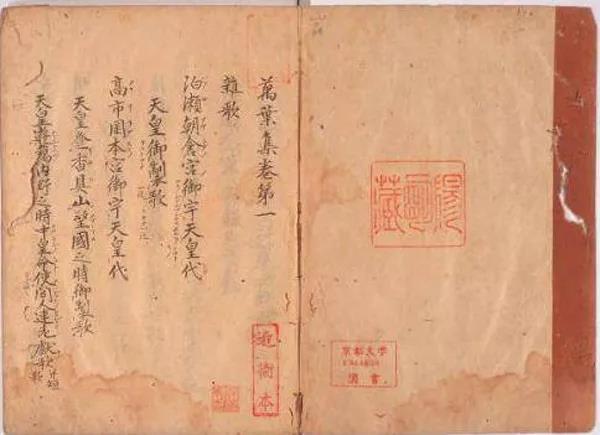 京都大学
圖書
萬葉集巻第一
雜歌
泊瀬朝倉宮御宇天皇代
天皇御製歌
高市岡本宮御宇天皇代
天皇登香具山望國之時御製歌
天皇遊獦内野之時中皇命使間人連老獻歌 并短歌
近衛本